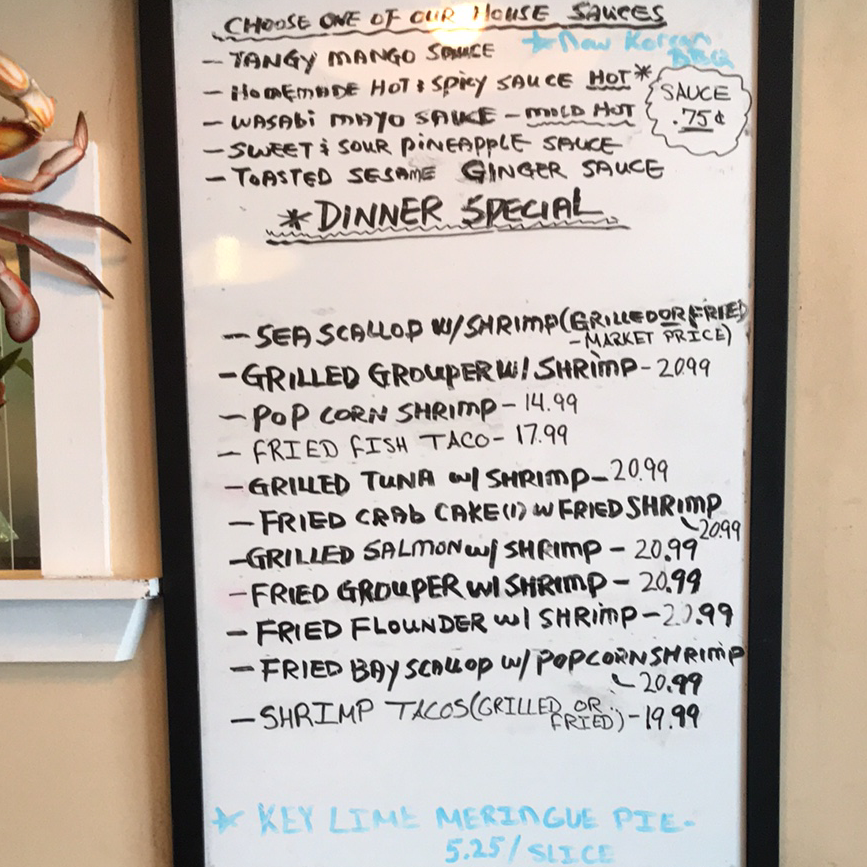 CHOOSE ONE OF OUR HOUSE SAUCES
* New Korean BBQ
- TANGY MANGO SAUCE
- HOMEMADE HOT & SPICY SAUCE HOT*
- WASABI MAYO SAUCE - MILD HOT
SAUCE
.75¢
- SWEET & SOUR PINEAPPLE SAUCE
- TOASTED SESAME GINGER SAUCE
* DINNER SPECIAL
- SEA SCALLOP W/SHRIMP (GRILLED OR FRIED
- MARKET PRICE)
- GRILLED GROUPER W/ SHRIMP - 20.99
- POP CORN SHRIMP - 14.99
- FRIED FISH TACO - 17.99
- GRILLED TUNA W/ SHRIMP - 20.99
- FRIED CRAB CAKE (1) W FRIED SHRIMP
20.99
- GRILLED SALMON W/ SHRIMP - 20.99
- FRIED GROUPER W/ SHRIMP - 20.99
- FRIED FLOUNDER W/ SHRIMP - 20.99
- FRIED BAY SCALLOP W/ POPCORN SHRIMP
20.99
- SHRIMP TACOS (GRILLED OR
FRIED) - 19.99
* KEY LIME MERINGUE PIE -
5.25/SLICE